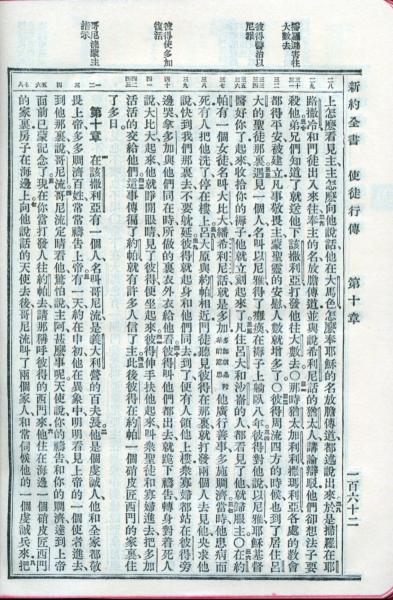 新約全書　使徒行傳　第十章　一百六十二
掃羅避害往
大數去
彼得醫治以
尼雅
彼得使多加
復活
哥尼流蒙主
指示
上怎麽看見主主怎麽向他說話他在大馬色怎麽奉耶穌的名放膽傳道都述說出來於是掃羅在耶
路撒冷和門徒出入來往奉主的名放膽傳道並與說希利尼話的猶太人講論辯駁他們卻想法子要
殺他弟兄們知道了就送他下該撒利亞打發他往大數去○那時猶太加利利撒瑪利亞各處的教會
都得平安被建立凡事敬畏主蒙聖靈的安慰人數就增多了○彼得周流四方的時候也到了居住呂
大的聖徒那裏遇見一個人名叫以尼雅得了癱瘓在褥子上躺臥八年彼得對他說以尼雅耶穌基督
醫好你了起來收拾你的褥子他就立刻起來了凡住呂大和沙崙的人都看見了他就歸服主○在約
帕有一個女徒名叫大比大繙希利尼話就是多加他廣行善事多施賙濟當時他患病而
死有人把他洗了停在樓上呂大原與約帕相近門徒聽見彼得在那裏就打發兩個人去見他央求他
說快到我們那裏去不要躭延彼得就起身和他們同去到了便有人領他上樓衆寡婦都站在彼得旁
邊哭拿多加與他們同在時所做的裏衣外衣給他看彼得叫他們都出去就跪下禱告轉身對着死人
說大比大起來他就睜開眼睛見了彼得便坐起來彼得伸手扶他起來叫衆聖徒和寡婦進去把多加
活活的交給他們這事傳徧了約帕就有許多人信了主此後彼得在約帕一個硝皮匠西門的家裏住
了多日
第十章　在該撒利亞有一個人名叫哥尼流是義大利營的百夫長他是個虔誠人他和全家都敬
畏上帝多多賙濟百姓常常禱告上帝有一天約在申初他在異象中明明看見上帝的一個使者進去
到他那裏說哥尼流哥尼流定睛看他驚怕說主阿甚麽事呢天使說你的禱告和你的賙濟達到上帝
面前已蒙記念了現在你當打發人往約帕去請那稱呼彼得的西門來他住在海邊一個硝皮匠西門
的家裏房子在海邊上向他說話的天使去後哥尼流叫了兩個家人和常伺候他的一個虔誠兵來把